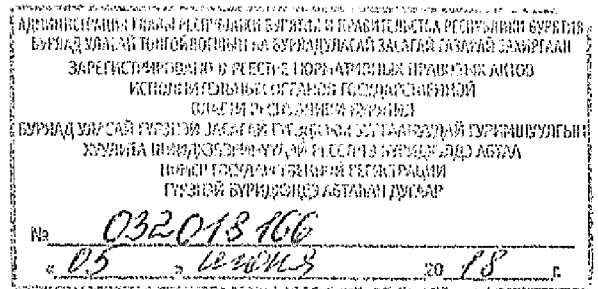 АДМИНИСТРАЦИЯ ГЛАВЫ РЕСПУБЛИКИ БУРЯТИЯ И ПРАВИТЕЛЬСТВА РЕСПУБЛИКИ БУРЯТИЯ
БУРЯАД УЛАСАЙ ТОЛГОЙЛОГШЫН БА БУРЯАД УЛАСАЙ ЗАСАГАЙ ГАЗАРАЙ ЗАХИРГААН
ЗАРЕГИСТРИРОВАНО В РЕЕСТРЕ НОРМАТИВНЫХ ПРАВОВЫХ АКТОВ
ИСПОЛНИТЕЛЬНЫХ ОРГАНОВ ГОСУДАРСТВЕННОЙ
ВЛАСТИ РЕСПУБЛИКИ БУРЯТИЯ
БУРЯАД УЛАСАЙ ГҮРЭНЭЙ ЗАСАГАЙ
НОМЕР ГОСУДАРСТВЕННОЙ РЕГИСТРАЦИИ
ГҮРЭНЭЙ БҮРИДХЭЛДЭ АБТАҺАН ДУГААР
№ 032018166
« 05 » июня 20 18 г.